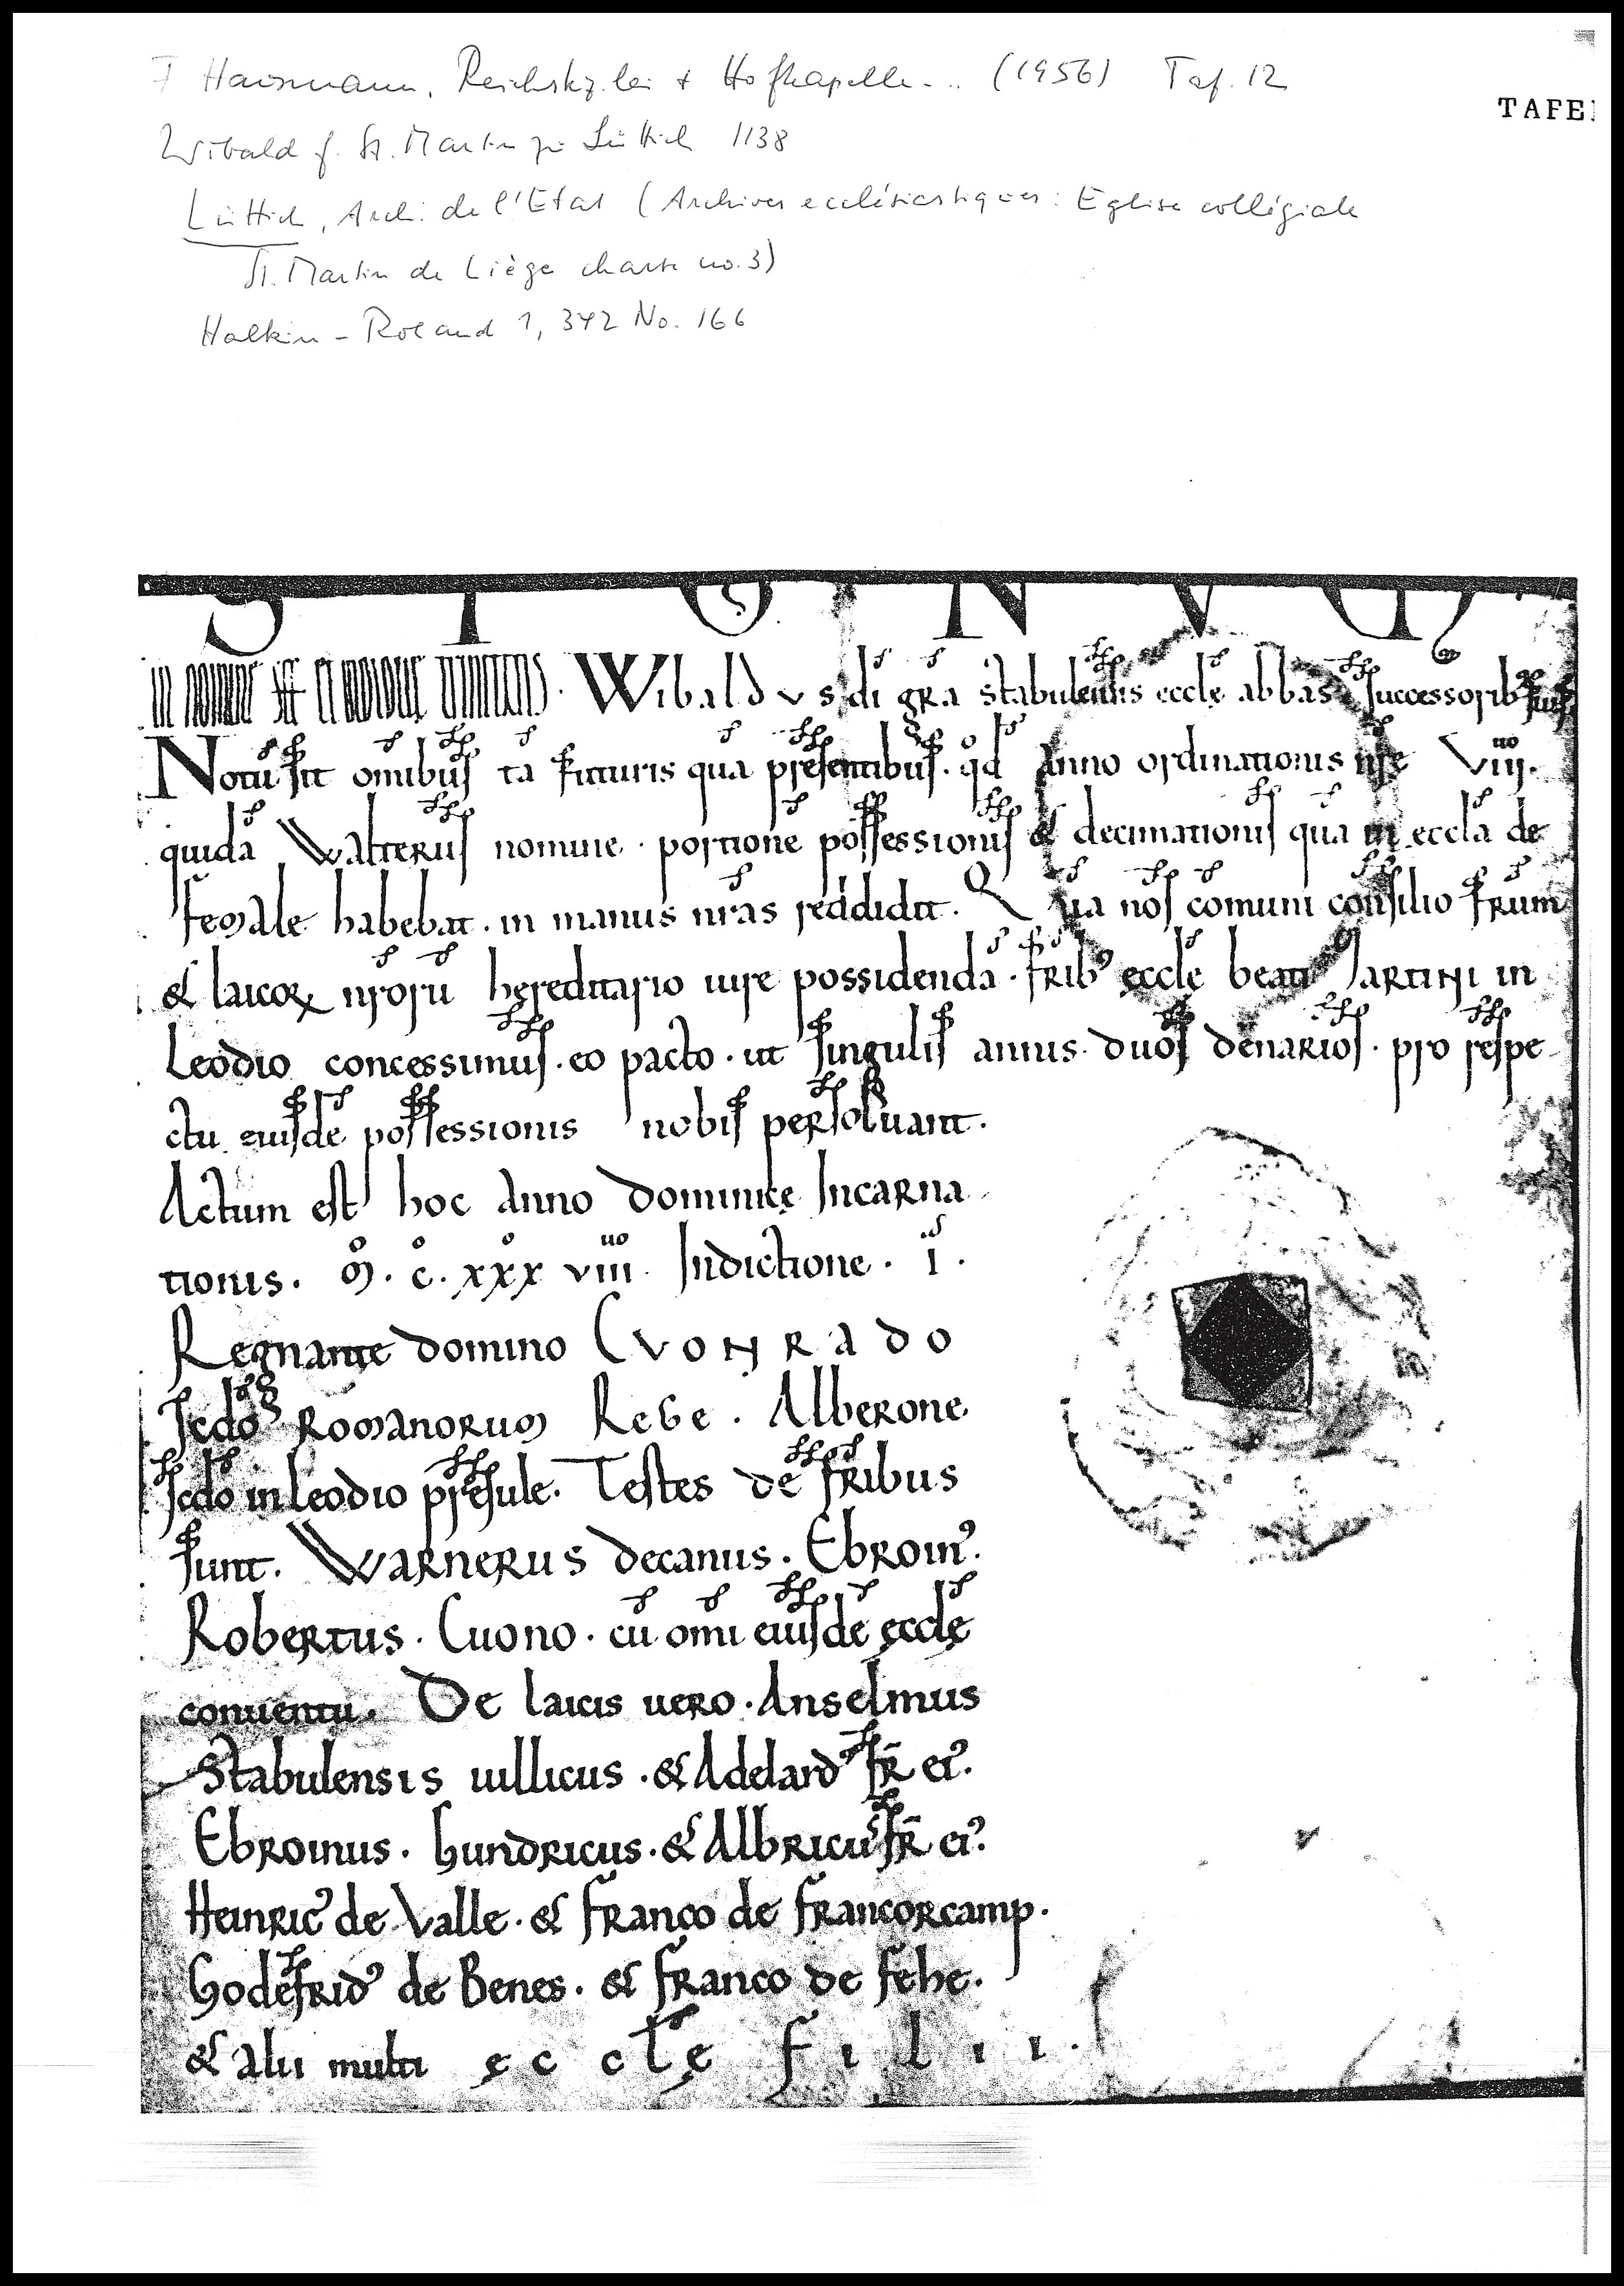 F Hausmann, Reichskzlei + Hofkapelle... (1956) Taf. 12
TAFE
Wibald f. St. Martin zu Lüttich 1138
Lüttich, Arch. de l'Etat (Archives ecclésiastiques: Eglise collégiale
St. Martin de Liège charte no. 3)
Halkin - Roland 1, 342 No. 166
S I G N V M
IN NOMINE SCE ET INDIVIDUE TRINITATIS. Wibaldus di gra stabulensis eccle abbas successorib suis
Notū sit omībus tā futuris quā presentibus. qd Anno ordinationis nrę Viiii.
quidā Walterus nomine. portionē possessionis & decimationis quā in ecclā de
female habebat. in manus nras reddidit. Quā nos comuni consilio frum
& laicoꝝ nrorū hereditario iure possidendā. frib' eccle beati Martini in
Leodio concessimus. eo pacto. ut singulis annis duos denarios. pro respe
ctu eiusdē possessionis nobis persoluant.
Actum est hoc Anno dominicę Incarna
tionis. M. C. xxx viii. Indictione. i.
Regnante domino CVONRADO
scdo Romanorum Rege. Alberone
scdo in Leodio presule. Testes de fribus
sunt. Warnerus decanus. Ebroin'.
Robertus. Cuono. cū omī eiusdē ęcclę
conuentu. De laicis uero. Anselmus
Stabulensis uillicus. & Adelard' fr̄ ei'.
Ebroinus. hundricus. & Albricus fr̄ ei'.
Heinric' de Valle. & franco de francorcamp.
Godefrid' de Benes. & franco de fehe.
& alii multi ęcclę filii.